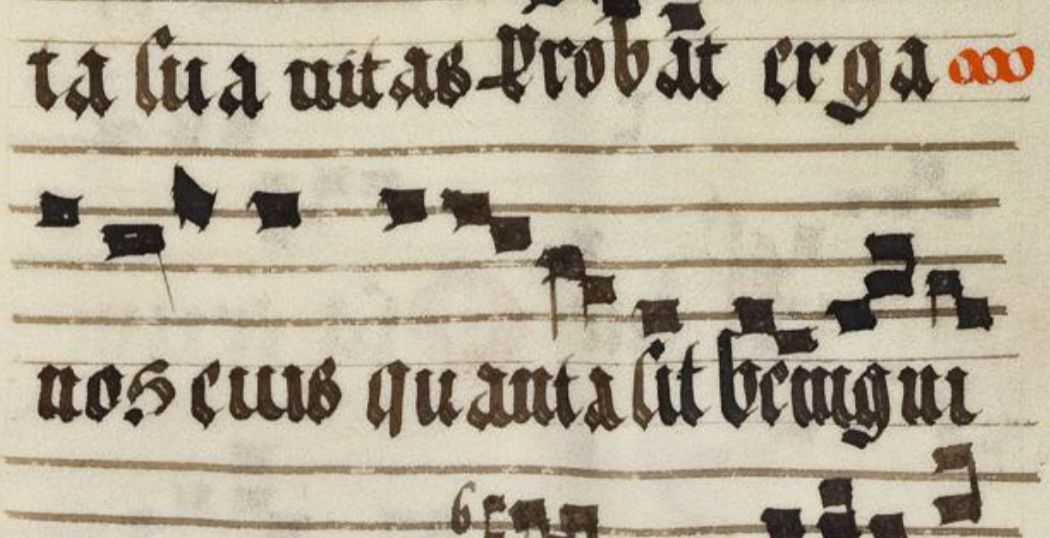 ta sua uitas Probāt erga
nos cuius quanta sit benigni
6